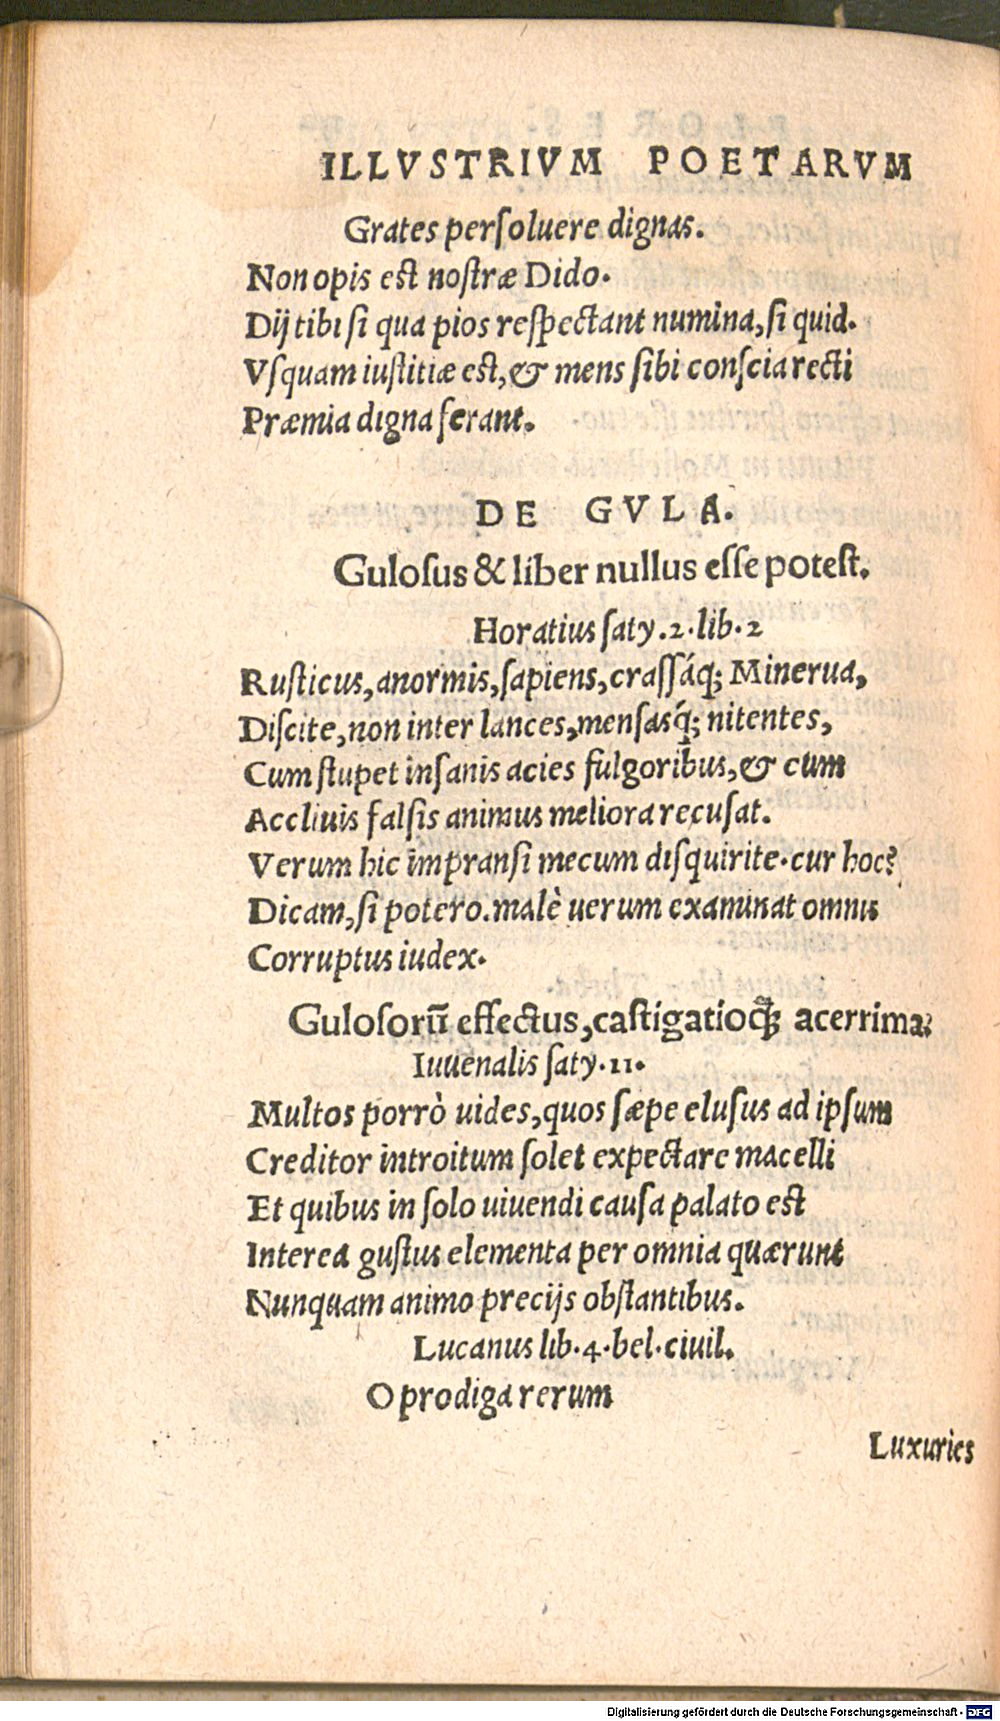 ILLVSTRIVM POETARVM
Grates perſoluere dignas.
Non opis eſt noſtræ Dido.
Dij tibi ſi qua pios reſpectant numina, ſi quid.
Vſquam iuſtitiæ eſt, & mens ſibi conſcia recti
Præmia digna ferant.
DE GVLA.
Guloſus & liber nullus eſſe poteſt.
Horatius ſaty.2.lib.2
Ruſticus, anormis, ſapiens, craſſáq; Minerua,
Diſcite, non inter lances, menſasq́; nitentes,
Cum ſtupet inſanis acies fulgoribus, & cum
Accliuis falſis animus meliora recuſat.
Verum hic impranſi mecum diſquirite. cur hoc?
Dicam, ſi potero. malè uerum examinat omnis
Corruptus iudex.
Guloſorū effectus, caſtigatioq̃; acerrima.
Iuuenalis ſaty.11.
Multos porrò uides, quos ſæpe eluſus ad ipſum
Creditor introitum ſolet expectare macelli
Et quibus in ſolo uiuendi cauſa palato eſt
Interea guſtus elementa per omnia quærunt
Nunquam animo precijs obſtantibus.
Lucanus lib.4.bel.ciuil.
O prodiga rerum
Luxuries
Digitalisierung gefördert durch die Deutsche Forschungsgemeinschaft - DFG